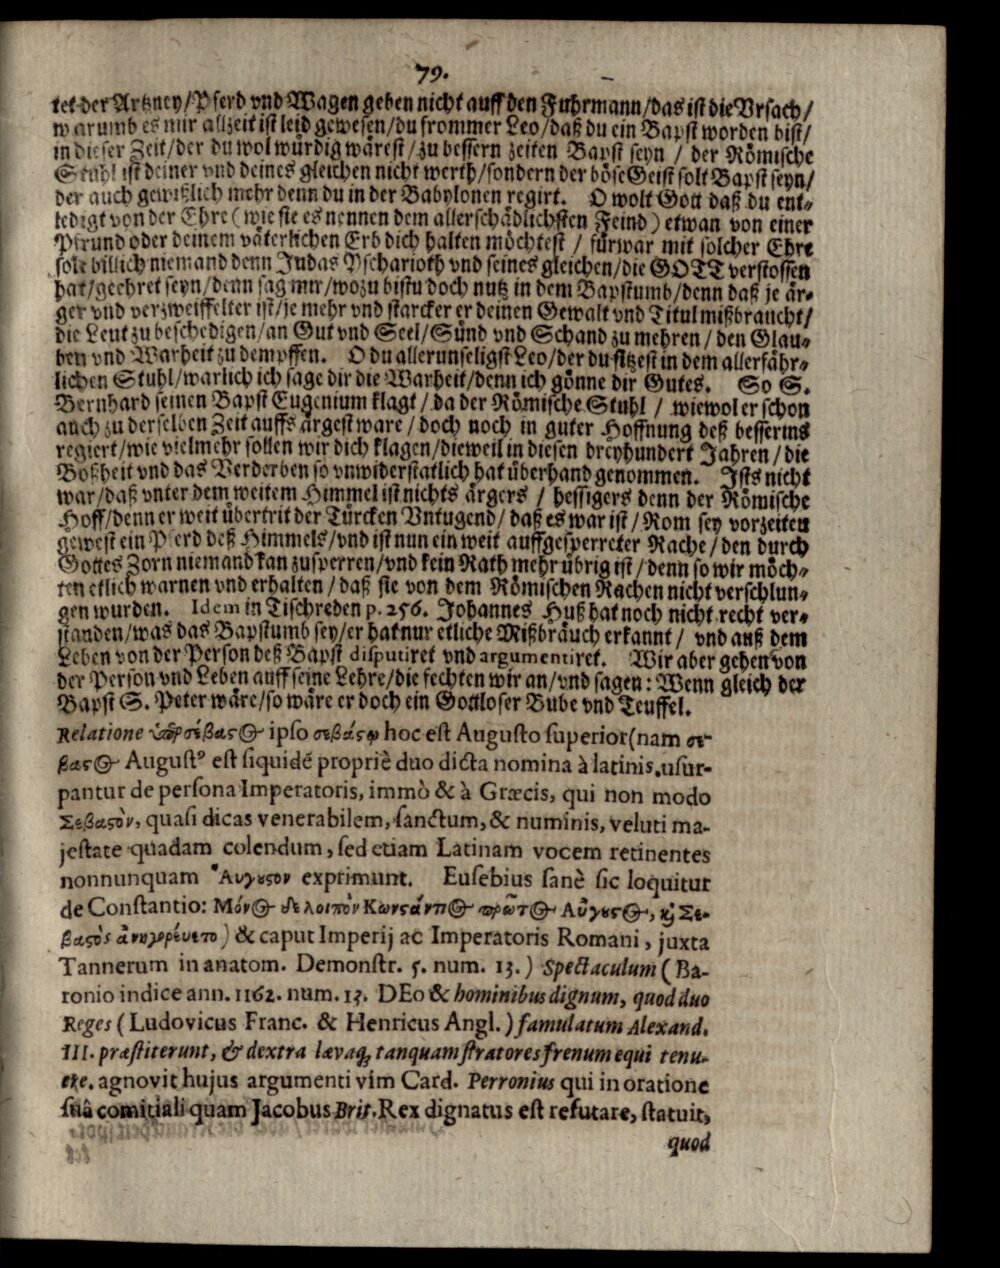 79.
tet der Artzney/Pferd vnd Wagen geben nicht auff den Fuhrmann/das ist die Vrsach/
warumb es mir allzeit ist leid gewesen/du frommer Leo/daß du ein Bapst worden bist/
in dieser Zeit/der du wol würdig wärest/zu bessern zeiten Bapst seyn / der Römische
Stuhl ist deiner vnd deines gleichen nicht werth/sondern der böse Geist solt Bapst seyn/
der auch gewißlich mehr denn du in der Babylonen regirt. O wolt Gott daß du ent-
ledigt von der Ehre (wie sie es nennen dem allerschädlichsten Feind) etwan von einer
Pfrund oder deinem väterlichen Erb dich halten möchtest / fürwar mit solcher Ehre
solt billich niemand denn Judas Pscharioth vnd seines gleichen/die GOTT verstossen
hat/geehret seyn/denn sag mir/wozu bistu doch nutz in dem Bapstumb/denn daß je är-
ger vnd verzweiffelter ist/je mehr vnd starcker er deinen Gewalt vnd Titul mißbraucht/
die Leut zu beschedigen/an Gut vnd Seel/Sünd vnd Schand zu mehren/den Glau-
ben vnd Warheit zu dempffen. O du allerunseligst Leo/der du sitzest in dem allerfähr-
lichen Stuhl/warlich ich sage dir die Warheit/denn ich gönne dir Gutes. So S.
Bernhard seinen Bapst Eugenium klagt/da der Römische Stuhl / wiewol er schon
auch zu derselben Zeit auffs ärgest ware/doch noch in guter Hoffnung deß besserins
regiert/wie vielmehr sollen wir dich klagen/dieweil in diesen dreyhundert Jahren/die
Boßheit vnd das Verderben so vnwiderstatlich hat überhand genommen. Ists nicht
war/daß vnter dem weitem Himmel ist nichts ärgers / hessigers denn der Römische
Hoff/denn er weit übertrit der Türcken Vntugend/daß es war ist/Rom sey vorzeiten
gewest ein Pferd deß Himmels/vnd ist nun ein weit auffgesperreter Rache/den durch
Gottes Zorn niemand kan zusperren/vnd kein Rath mehr übrig ist/denn so wir möch-
ten etlich warnen vnd erhalten/daß sie von dem Römischen Rachen nicht verschlun-
gen wurden. Idem in Tischreden p. 256. Johannes Huß hat noch nicht recht ver-
standen/was das Bapstumb sey/er hat nur etliche Mißbräuch erkannt / vnd auß dem
Leben von der Person deß Bapst disputiret vnd argumentiret. Wir aber gehen von
der Person vnd Leben auff seine Lehre/die fechten wir an/vnd sagen: Wenn gleich der
Bapst S. Peter wäre/so wäre er doch ein Gottloser Bube vnd Teuffel.
Relatione ὑπερσέβαςος ipso σεβάςῳ hoc est Augusto superior (nam σε-
βαςος August⁹ est siquidẽ propriè duo dicta nomina à latinis. usur-
pantur de persona Imperatoris, immò & à Græcis, qui non modo
Σεβαςὸν, quasi dicas venerabilem, sanctum, & numinis, veluti ma-
jestate quadam colendum, sed etiam Latinam vocem retinentes
nonnunquam Αυγυςον exprimunt. Eusebius sanè sic loquitur
de Constantio: Μόνος δε λοιπὸν Κωνςάντιος πρῶτος Αὔγυςος, ϗ Σε-
βαςὸς ἀνηγορέυετο) & caput Imperij ac Imperatoris Romani, juxta
Tannerum in anatom. Demonstr. 5. num. 13.) Spectaculum (Ba-
ronio indice ann. 1162. num. 13. DEo & hominibus dignum, quod duo
Reges (Ludovicus Franc. & Henricus Angl.) famulatum Alexand.
III. præstiterunt, & dextra lævaq; tanquam stratores frenum equi tenu-
ere. agnovit hujus argumenti vim Card. Perronius qui in oratione
suâ comitiali quam Jacobus Brit. Rex dignatus est refutare, statuit,
quod